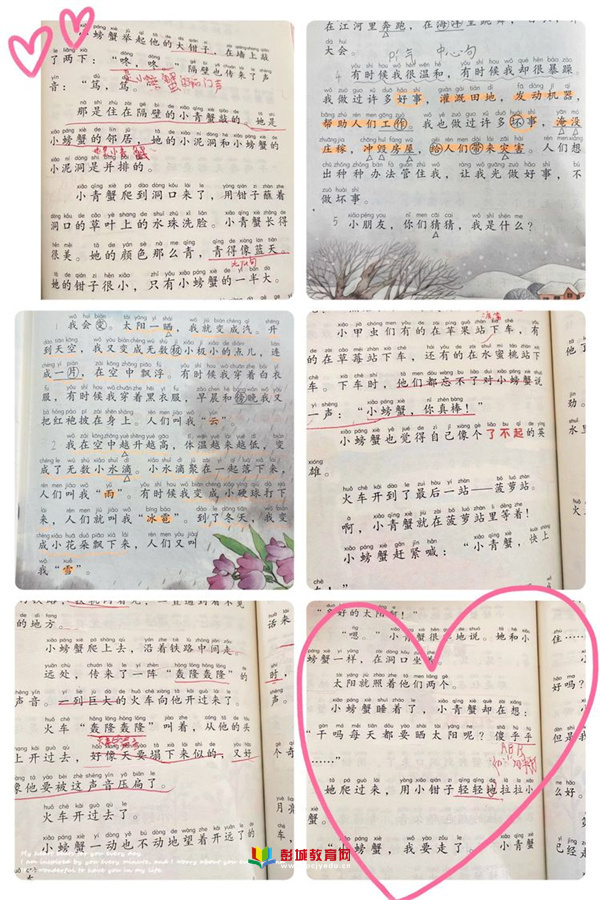 小螃蟹举起他的大钳子，在墙上敲
了两下：“咚，咚。”隔壁也传来了声
音：“笃，笃。”
那是住在隔壁的小青蟹敲的。她是
小螃蟹的邻居，她的小泥洞和小螃蟹的
小泥洞是并排的。
小青蟹爬到洞口来了，用钳子蘸着
洞口的草叶上的水珠洗脸。小青蟹长得
很美。她的颜色那么青，青得像蓝天。
她的钳子很小，只有小螃蟹的一半大。
大会。
中心句
4 有时候我很温和，有时候我却很暴躁。
我做过许多好事，灌溉田地，发动机器，
帮助人们工作。我也做过许多坏事，淹没
庄稼，冲毁房屋，给人们带来灾害。人们想
出种种办法管住我，让我光做好事，不
做坏事。
5 小朋友，你们猜猜，我是什么？
1 我会变。太阳一晒，我就变成汽。升
到天空，我又变成无数极小极小的点儿，连
成一片，在空中飘浮。有时候我穿着白衣
服，有时候我穿着黑衣服，早晨和傍晚我又
把红袍披在身上。人们叫我“云”
2 我在空中越升越高，体温越来越低，变
成了无数小水滴。小水滴聚在一起落下来，
人们叫我“雨”。有时候我变成小硬球打下
来，人们就叫我“冰雹”。到了冬天，我变
成小花朵飘下来，人们又叫
我“雪”
小甲虫们有的在苹果站下车，有
的在草莓站下车，还有的在水蜜桃站下
车。下车时，他们都忘不了对小螃蟹说
一声：“小螃蟹，你真棒！”
小螃蟹也觉得自己像个了不起的英
雄。
火车开到了最后一站——菠萝站。
啊，小青蟹就在菠萝站里等着！
小螃蟹赶紧喊：“小青蟹，快上
的地方。
小螃蟹爬上去，沿着铁路中间走。
远处，传来了一阵“轰隆轰隆”的
声音。一列巨大的火车向他开过来了。
火车“轰隆轰隆”叫着，从他的头
上开过去，好像天要塌下来似的，又好
像他要被这声音压扁了。
火车开过去了。
小螃蟹一动也不动地望着开远了的
“嗯。”小青蟹很 地说。她和小
螃蟹一样，在洞口坐
太阳就照着他们两个。
小螃蟹睡着了，小青蟹却在想：
“干吗每天都要晒太阳呢？傻乎乎
……”
ABB
她爬过来，用小钳子轻轻地拉拉小
“小螃蟹，我要走了。”小青
彭城教育网